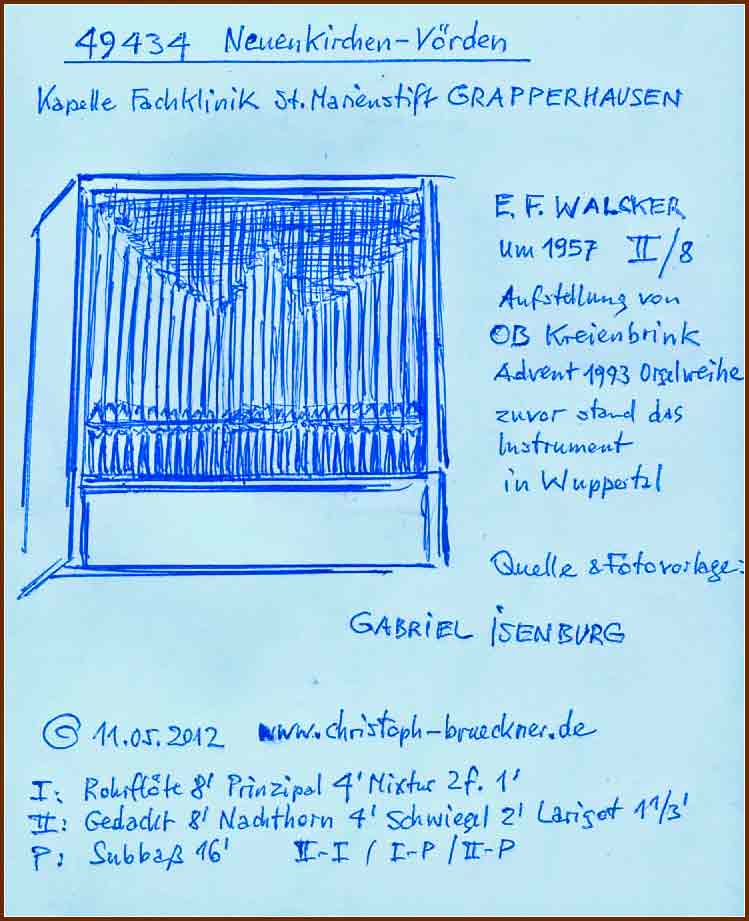 49434 Neuenkirchen-Vörden
Kapelle Fachklinik St. Marienstift GRAPPERHAUSEN
E. F. WALCKER
um 1957 II/8
Aufstellung von
OB Kreienbrink
Advent 1993 Orgelweihe
zuvor stand das
Instrument
in Wuppertal
Quelle & Fotovorlage:
GABRIEL ISENBURG
© 11.05.2012 www.christoph-brueckner.de
I: Rohrflöte 8' Prinzipal 4' Mixtur 2f. 1'
II: Gedackt 8' Nachthorn 4' Schwiegel 2' Larigot 1 1/3'
P: Subbaß 16' II-I / I-P / II-P